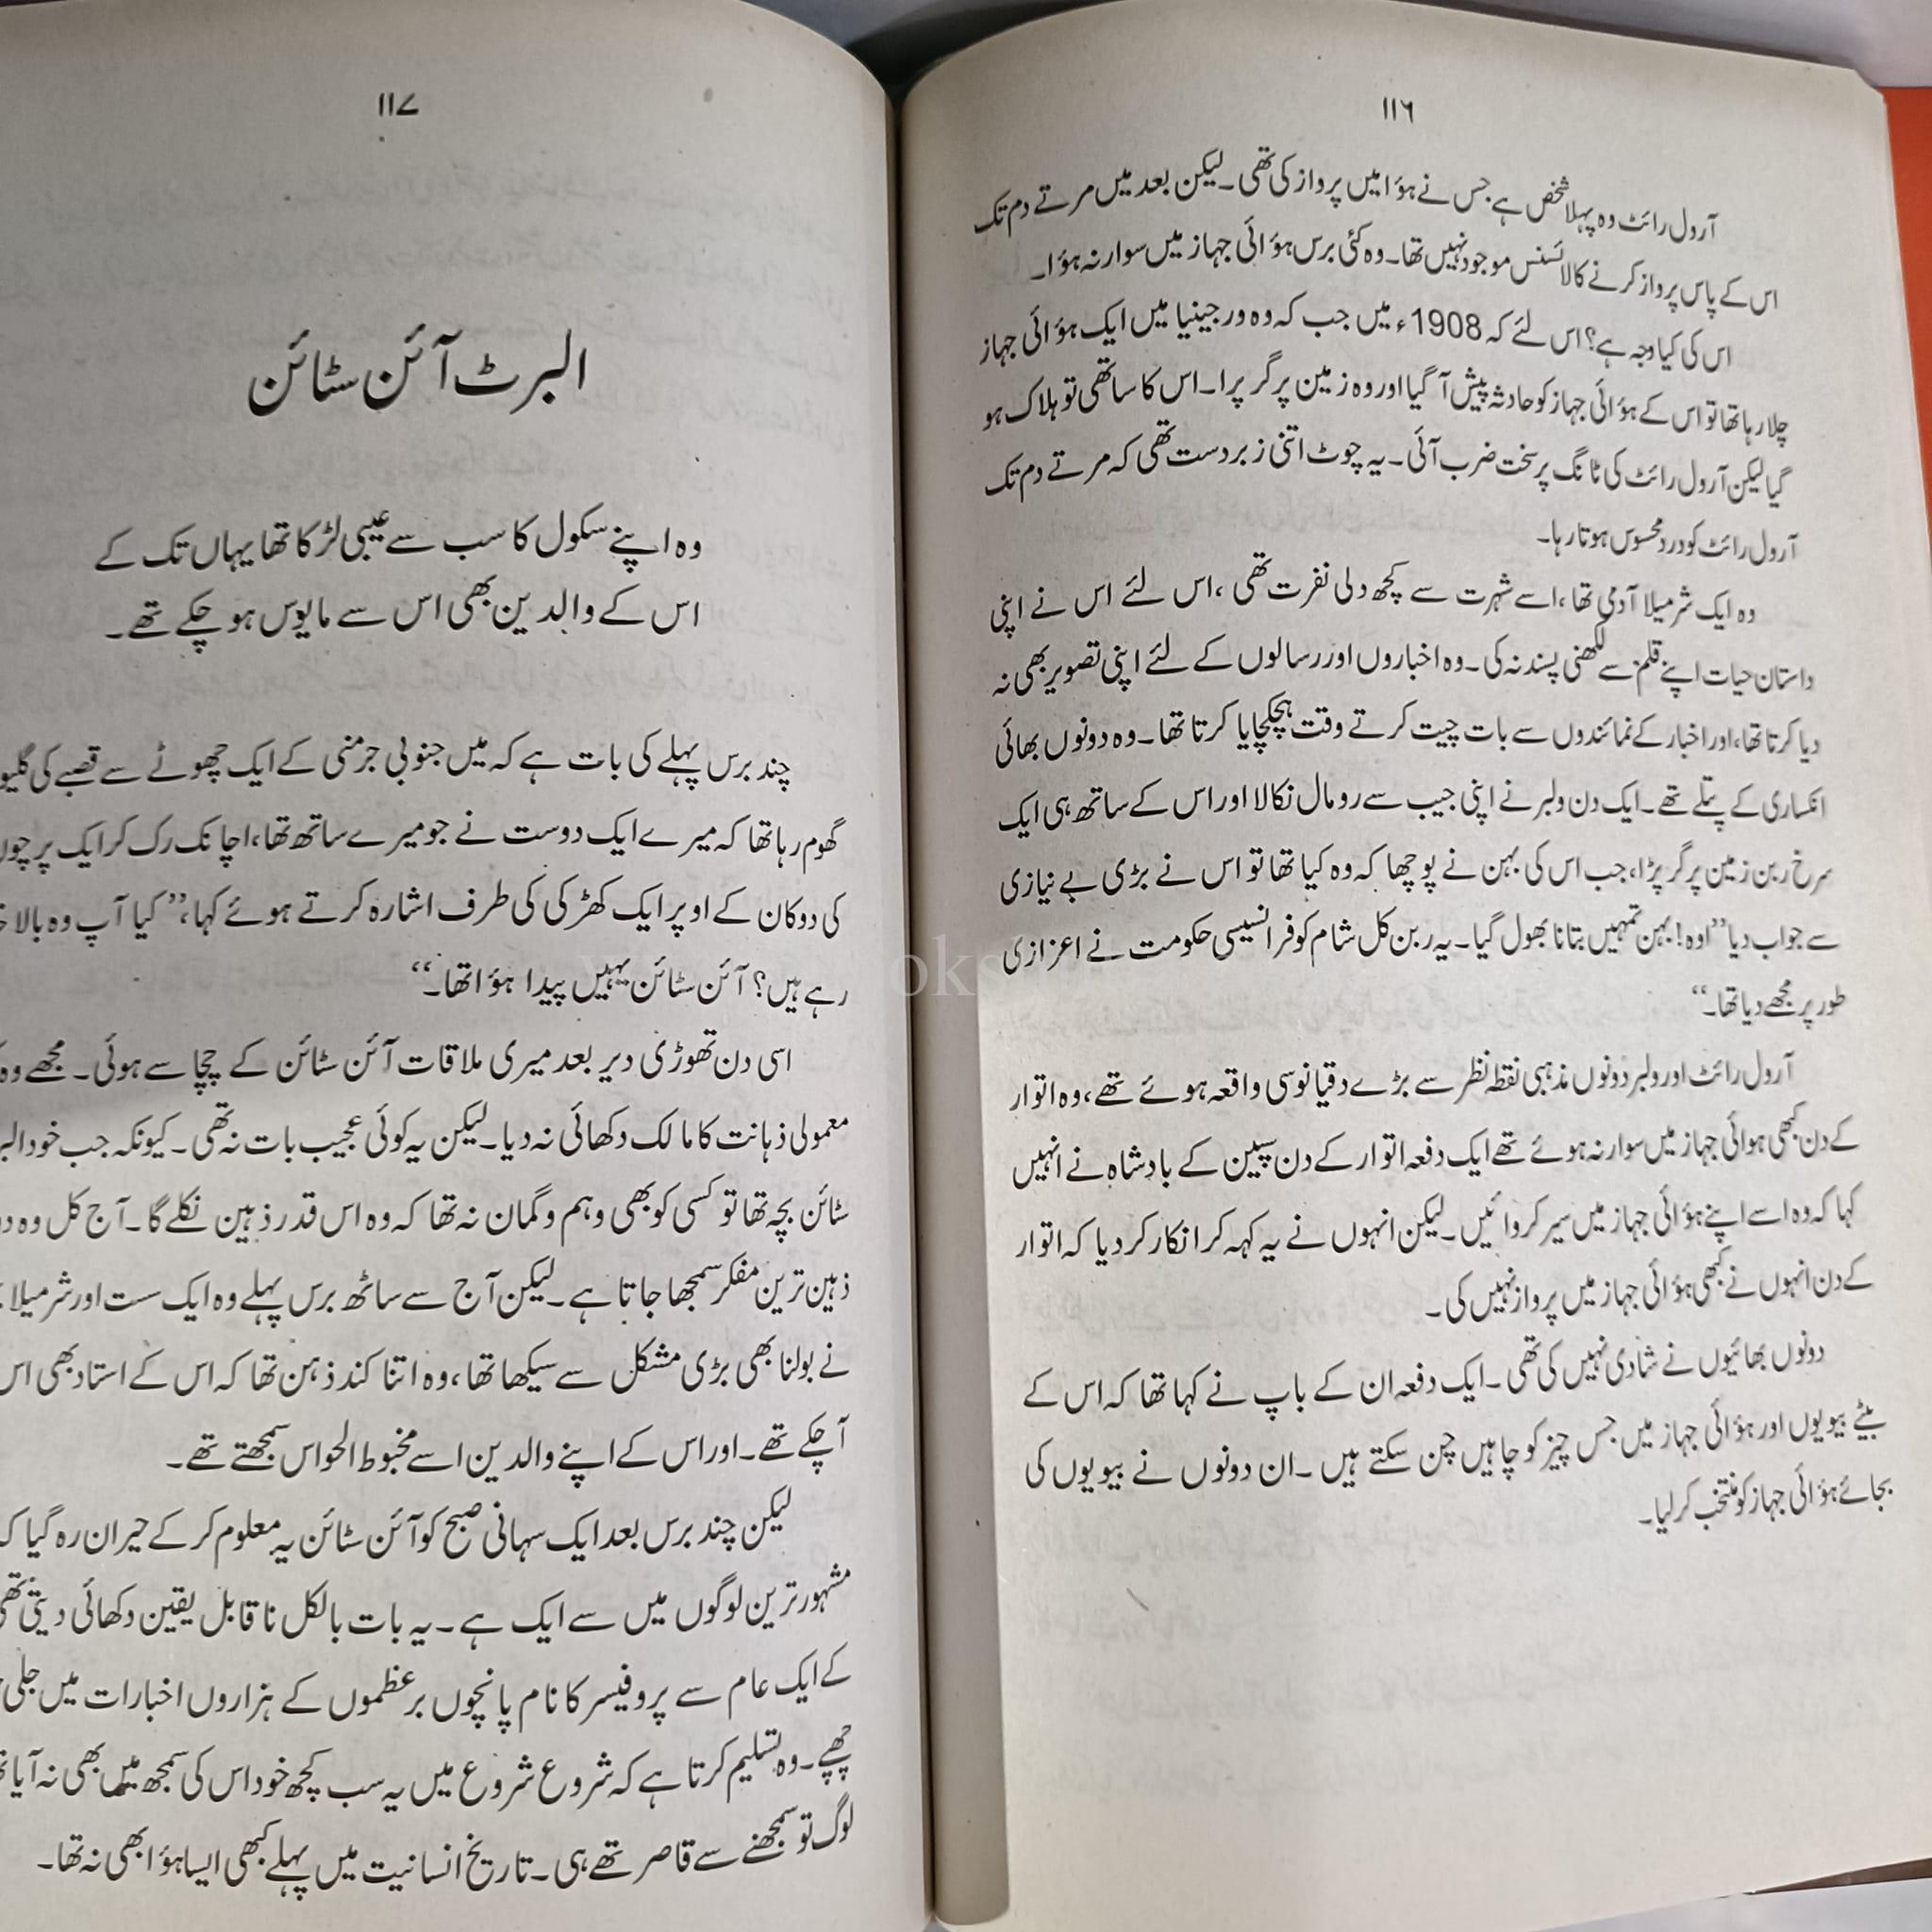 ۱۱۶
آرول رائٹ وہ پہلا شخص ہے جس نے ہوٴا میں پرواز کی تھی۔ لیکن بعد میں مرتے دم تک
اس کے پاس پرواز کرنے کا لائسنس موجود نہیں تھا۔ وہ کئی برس ہوٴائی جہاز میں سوار نہ ہوٴا۔
اس کی کیا وجہ ہے؟ اس لئے کہ 1908ء میں جب کہ وہ ورجینیا میں ایک ہوٴائی جہاز
چلا رہا تھا تو اس کے ہوٴائی جہاز کو حادثہ پیش آ گیا اور وہ زمین پر گر پرا۔ اس کا ساتھی تو ہلاک ہو
گیا لیکن آرول رائٹ کی ٹانگ پر سخت ضرب آئی۔ یہ چوٹ اتنی زبردست تھی کہ مرتے دم تک
آرول رائٹ کو درد محسوس ہوتا رہا۔
وہ ایک شرمیلا آدمی تھا، اسے شہرت سے کچھ دلی نفرت تھی، اس لئے اس نے اپنی
داستان حیات اپنے قلم سے لکھنی پسند نہ کی۔ وہ اخباروں اور رسالوں کے لئے اپنی تصویر بھی نہ
دیا کرتا تھا، اور اخبار کے نمائندوں سے بات چیت کرتے وقت ہچکچایا کرتا تھا۔ وہ دونوں بھائی
انکساری کے پتلے تھے۔ ایک دن ولبر نے اپنی جیب سے رومال نکالا اور اس کے ساتھ ہی ایک
سرخ ربن زمین پر گر پڑا، جب اس کی بہن نے پوچھا کہ وہ کیا تھا تو اس نے بڑی بے نیازی
سے جواب دیا ”اوہ! بہن تمہیں بتانا بھول گیا۔ یہ ربن کل شام کو فرانسیسی حکومت نے اعزازی
طور پر مجھے دیا تھا۔“
آرول رائٹ اور ولبر دونوں مذہبی نقطہ نظر سے بڑے دقیانوسی واقعہ ہوئے تھے، وہ اتوار
کے دن کبھی ہوائی جہاز میں سوار نہ ہوئے تھے ایک دفعہ اتوار کے دن سپین کے بادشاہ نے انہیں
کہا کہ وہ اسے اپنے ہوٴائی جہاز میں سیر کروائیں۔ لیکن انہوں نے یہ کہہ کر انکار کر دیا کہ اتوار
کے دن انہوں نے کبھی ہوٴائی جہاز میں پرواز نہیں کی۔
دونوں بھائیوں نے شادی نہیں کی تھی۔ ایک دفعہ ان کے باپ نے کہا تھا کہ اس کے
بیٹے بیویوں اور ہوٴائی جہاز میں جس چیز کو چاہیں چن سکتے ہیں۔ ان دونوں نے بیویوں کی
بجائے ہوٴائی جہاز کو منتخب کر لیا۔
۱۱۷
البرٹ آئن سٹائن
وہ اپنے سکول کا سب سے عیبی لڑکا تھا یہاں تک کے
اس کے والدین بھی اس سے مایوس ہو چکے تھے۔
چند برس پہلے کی بات ہے کہ میں جنوبی جرمنی کے ایک چھوٹے سے قصبے کی
گھوم رہا تھا کہ میرے ایک دوست نے جو میرے ساتھ تھا، اچانک رک کر ایک
کی دوکان کے اوپر ایک کھڑکی کی طرف اشارہ کرتے ہوئے کہا، ”کیا آپ وہ
رہے ہیں؟ آئن سٹائن یہیں پیدا ہوٴا تھا۔“
اسی دن تھوڑی دیر بعد میری ملاقات آئن سٹائن کے چچا سے ہوئی۔ مجھے وہ
معمولی ذہانت کا مالک دکھائی نہ دیا۔ لیکن یہ کوئی عجیب بات نہ تھی۔ کیونکہ جب خود
سٹائن بچہ تھا تو کسی کو بھی وہم و گمان نہ تھا کہ وہ اس قدر ذہین نکلے گا۔ آج کل وہ
ذہین ترین مفکر سمجھا جاتا ہے۔ لیکن آج سے ساٹھ برس پہلے وہ ایک ست اور شرمیلا
نے بولنا بھی بڑی مشکل سے سیکھا تھا، وہ اتنا کند ذہن تھا کہ اس کے استاد بھی اس
آ چکے تھے۔ اور اس کے اپنے والدین اسے مخبوط الحواس سمجھتے تھے۔
لیکن چند برس بعد ایک سہانی صبح کو آئن سٹائن یہ معلوم کر کے حیران رہ گیا
مشہور ترین لوگوں میں سے ایک ہے۔ یہ بات بالکل ناقابل یقین دکھائی دیتی تھی
کے ایک عام سے پروفیسر کا نام پانچوں برعظموں کے ہزاروں اخبارات میں جلی
چھپے۔ وہ تسلیم کرتا ہے کہ شروع شروع میں یہ سب کچھ خود اس کی سمجھ میں بھی نہ آیا
لوگ تو سمجھنے سے قاصر تھے ہی۔ تاریخ انسانیت میں پہلے کبھی ایسا ہوٴا بھی نہ تھا۔